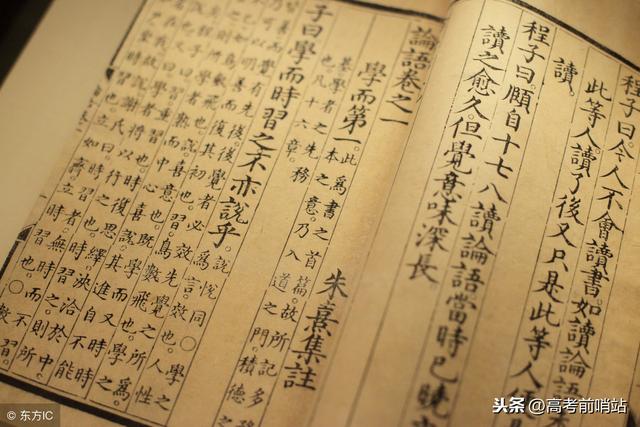 程子曰。今人不會讀書。如讀論語
此等人。讀了後又只是此等人。便
讀。
程子曰。頤自十七八讀論語。當時已曉
讀之愈久。但覺意味深長
論語卷之一
朱熹集註
學而第一
此為書之首篇。故所記多務
本之意。乃入道之門。積德之
基。學者之先務
也。凡十六章。
子曰。學而時習之。不亦說乎。
說悅同。○學之
為言效也。人性
皆善。而覺有先後。後覺者必效先覺之所為。
乃可以明善而復其初也。習。鳥數飛也。學之
不已。如鳥數飛也。說。喜意也。既學而又時時
習之。則所學者熟。而中心喜說。其進自不能
時復思繹。浹洽於中。則
學者將以行之也。時習之。則所
在我故說。謝氏曰。時習者。無時而不習。
立如齊。立時習也。○
頭条 @高考前哨站
© 东方IC